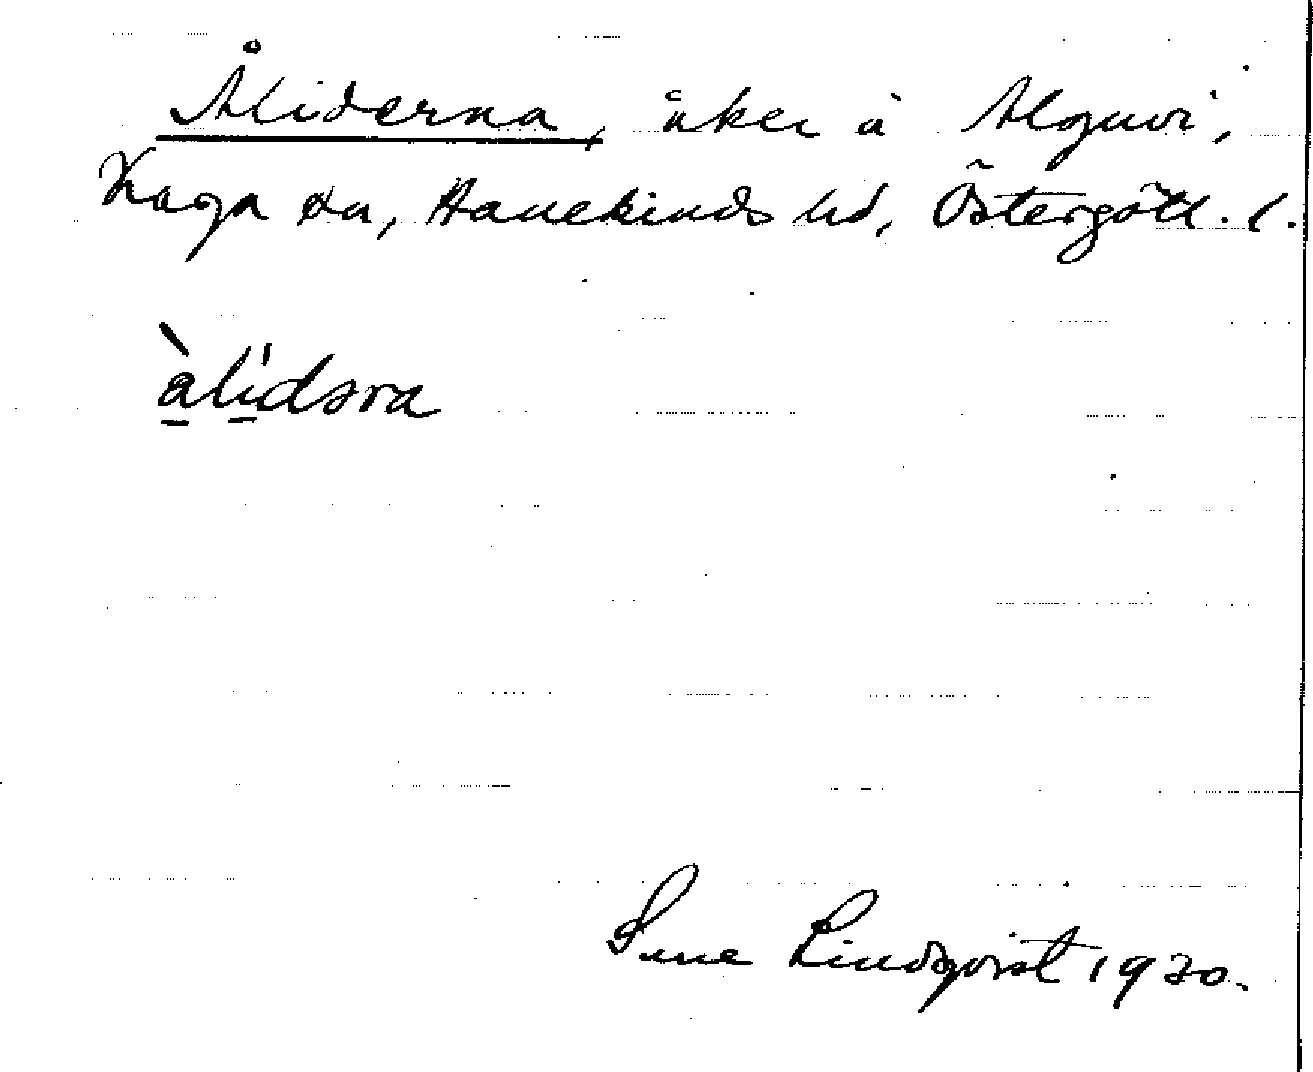 Åliderna, åker å Alguvi,
Kaga sn, Hanekinds hd, Östergötl. l.
àlìdsra
Sune Lindqvist 1920.